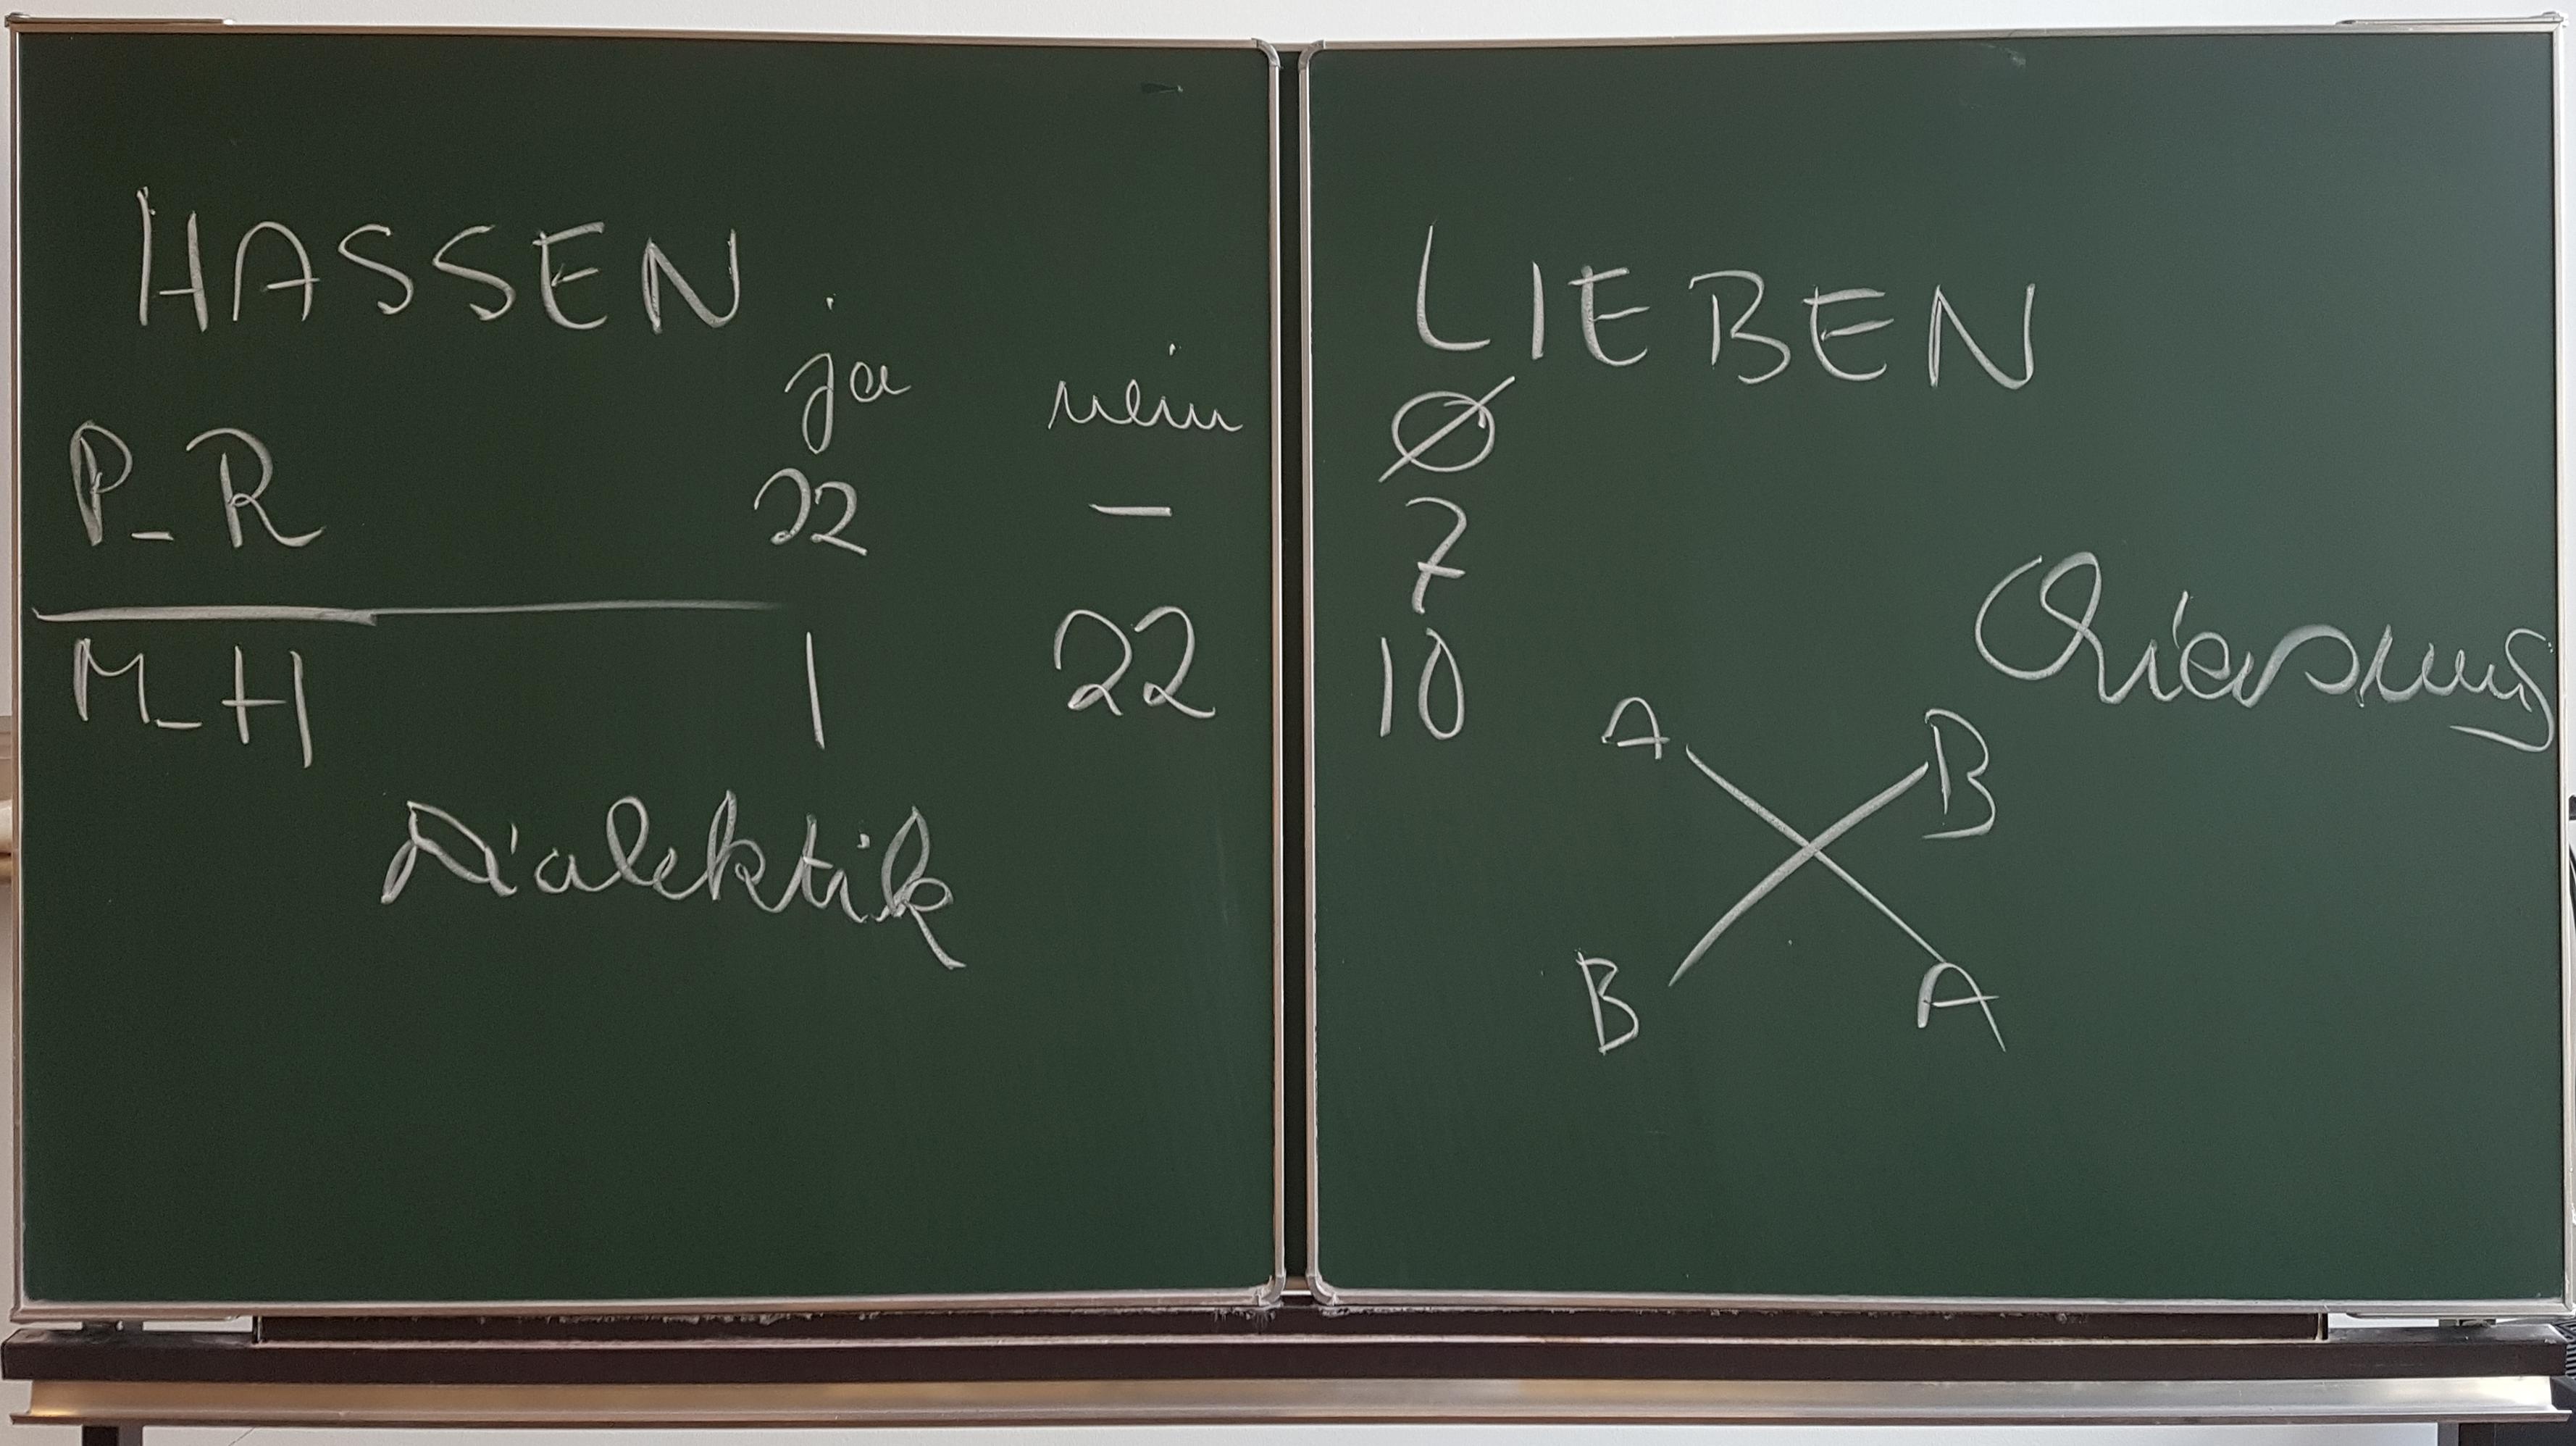 HASSEN
ja nein
P_R 22 —
M_H 1 22
Dialektik
LIEBEN
Ø
7
10
A B
B A